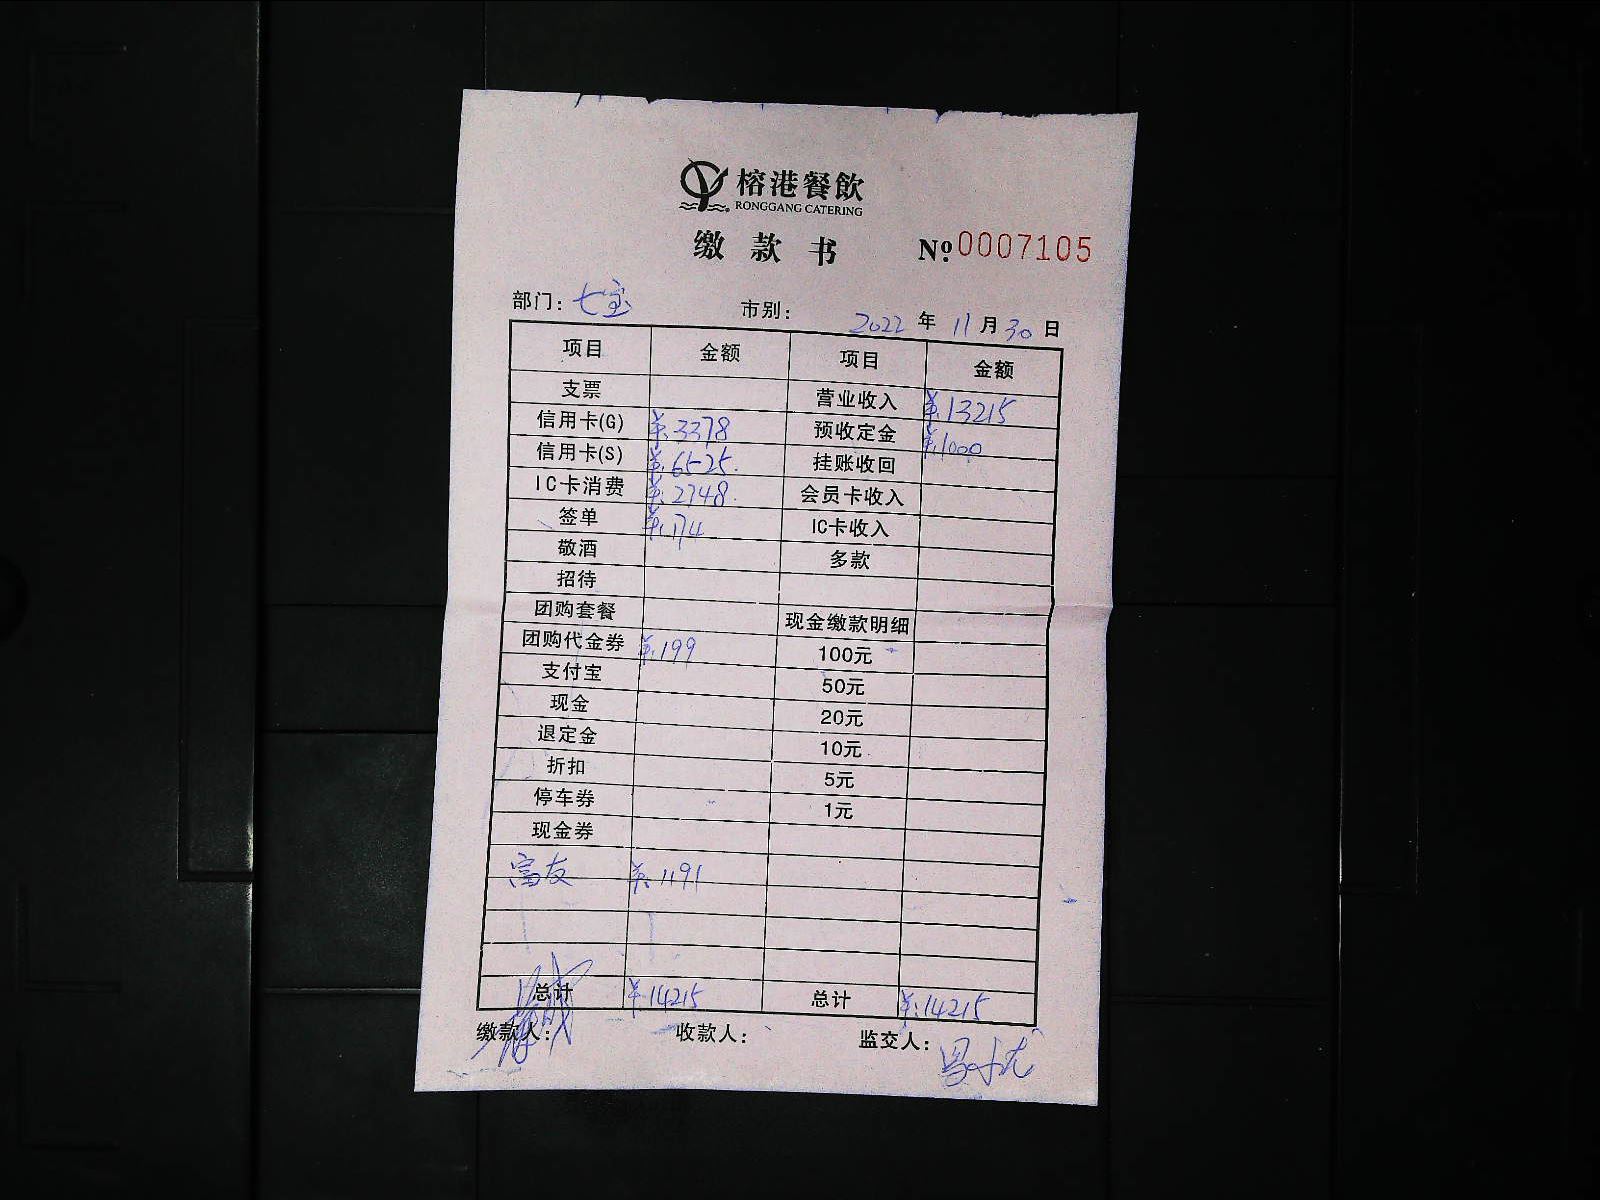 榕港餐飲
RONGGANG CATERING
缴款书 №0007105
部门：七宝 市别： 2022年11月30日
项目 金额 项目 金额
支票 营业收入 ¥:13215
信用卡(G) ¥:3378 预收定金 ¥:1000
信用卡(S) ¥:6525. 挂账收回
IC卡消费 ¥:2748. 会员卡收入
签单 ¥:174 IC卡收入
敬酒 多款
招待
团购套餐 现金缴款明细
团购代金券 ¥:199 100元
支付宝 50元
现金 20元
退定金 10元
折扣 5元
停车券 1元
现金券
富友 ¥:1191
总计 ¥:14215 总计 ¥:14215
缴款人： 收款人： 监交人：